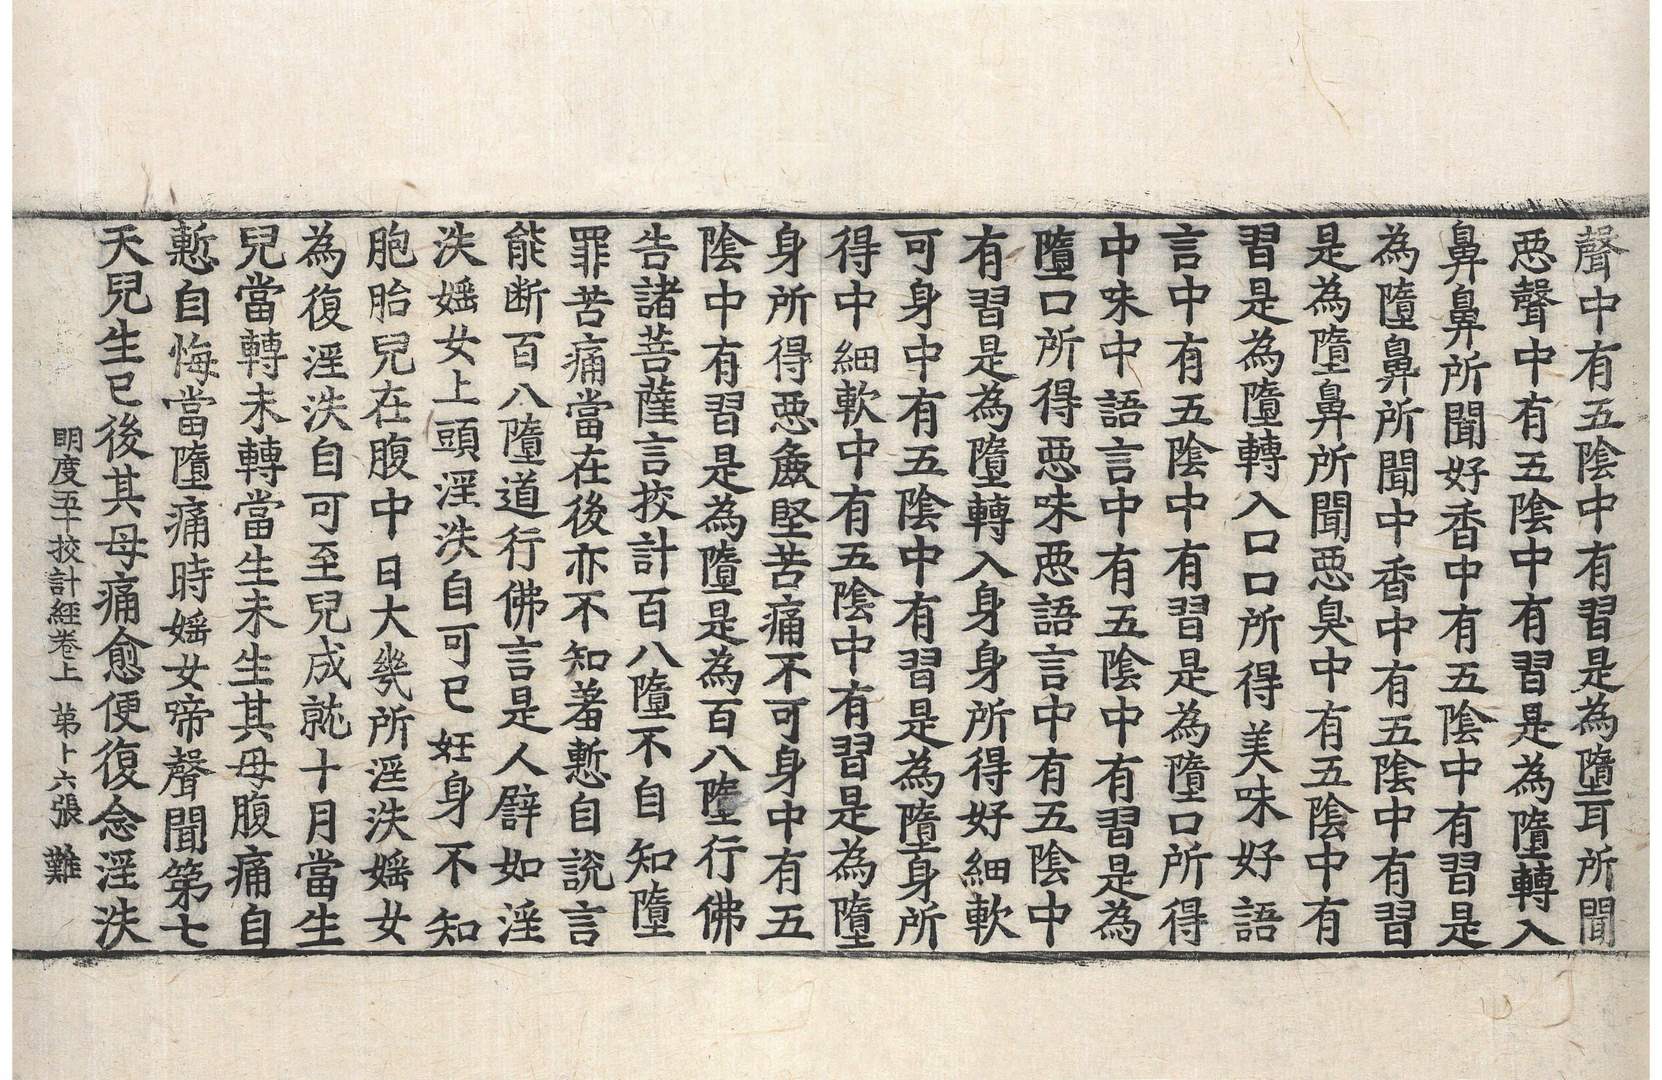 聲中有五陰中有習是為墮耳所聞
惡聲中有五陰中有習是為墮轉入
鼻鼻所聞好香中有五陰中有習是
為墮鼻所聞中香中有五陰中有習
是為墮鼻所聞惡臭中有五陰中有
習是為墮轉入口口所得美味好語
言中有五陰中有習是為墮口所得
中味中語言中有五陰中有習是為
墮口所得惡味惡語言中有五陰中
有習是為墮轉入身身所得好細軟
可身中有五陰中有習是為墮身所
得中細軟中有五陰中有習是為墮
身所得惡麁堅苦痛不可身中有五
陰中有習是為墮是為百八墮行佛
告諸菩薩言挍計百八墮不自知墮
罪苦痛當在後亦不知羞慙自說言
能断百八墮道行佛言是人譬如淫
泆婬女上頭淫泆自可已妊身不知
胞胎兒在腹中日大幾所淫泆婬女
為復淫泆自可至兒成就十月當生
兒當轉未轉當生未生其母腹痛自
慙自悔當墮痛時婬女啼聲聞第七
天兒生已後其母痛愈便復念淫泆
明度五十挍計經卷上 第十六張 難